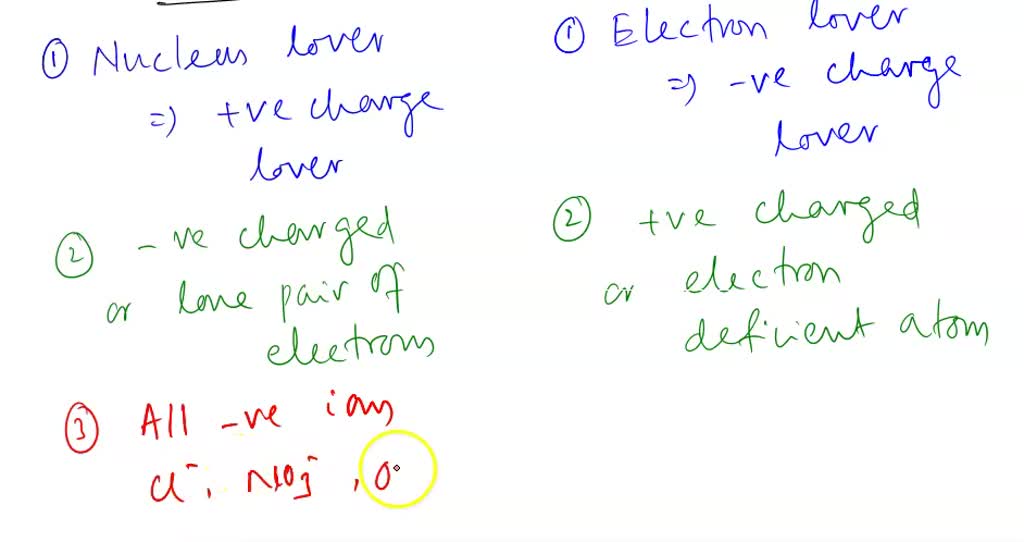 ① Nucleus lover
=) +ve charge
lover
② -ve charged
or lone pair of
electrons
③ All -ve ions
Cl⁻, NO₃⁻, O
① Electron lover
=) -ve charge
lover
② +ve charged
or electron
deficient atom